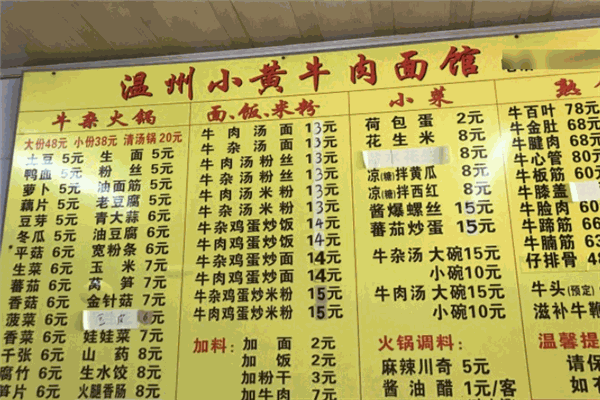 温州小黄牛肉面馆
牛杂火锅
大份48元 小份38元 清汤锅20元
土豆 5元 生面 5元
鸭血 5元 粉丝 5元
萝卜 5元 油面筋 5元
藕片 5元 老豆腐 5元
豆芽 5元 青大蒜 6元
冬瓜 5元 油豆腐 6元
平菇 6元 宽粉条 6元
生菜 6元 玉米 7元
蕃茄 6元 莴笋 7元
香菇 6元 金针菇 7元
菠菜 6元 6元
香菜 6元 娃娃菜 7元
千张 6元 山药 8元
腐竹 6元 生水饺 8元
木耳 6元 火腿香肠 8元
面、饭、米粉
牛肉汤面 13元
牛杂汤面 13元
牛肉汤粉丝 13元
牛杂汤粉丝 13元
牛肉汤米粉 13元
牛杂汤米粉 13元
牛杂鸡蛋炒饭 14元
牛肉鸡蛋炒饭 14元
牛肉鸡蛋炒面 14元
牛杂鸡蛋炒面 14元
牛肉鸡蛋炒米粉 15元
牛杂鸡蛋炒米粉 15元
加料: 加面 2元
加饭 2元
加粉干 3元
加牛肉 7元
小菜
荷包蛋 2元
花生米 8元
8元
凉(糖)拌黄瓜 8元
凉(糖)拌西红 8元
酱爆螺丝 15元
蕃茄炒蛋 15元
牛杂汤 大碗15元
小碗10元
牛肉汤 大碗15元
小碗10元
火锅调料:
麻辣川奇 5元
酱油醋 1元/客
熟
牛百叶 78元
牛金肚 68元
牛腱肉 68元
牛心管 80元
牛板筋 60元
牛膝盖
牛脸肉 60元
牛蹄筋 66元
牛腩筋 60元
仔排骨 48
牛头(预定)
滋补牛鞭
温馨提
请保
如有